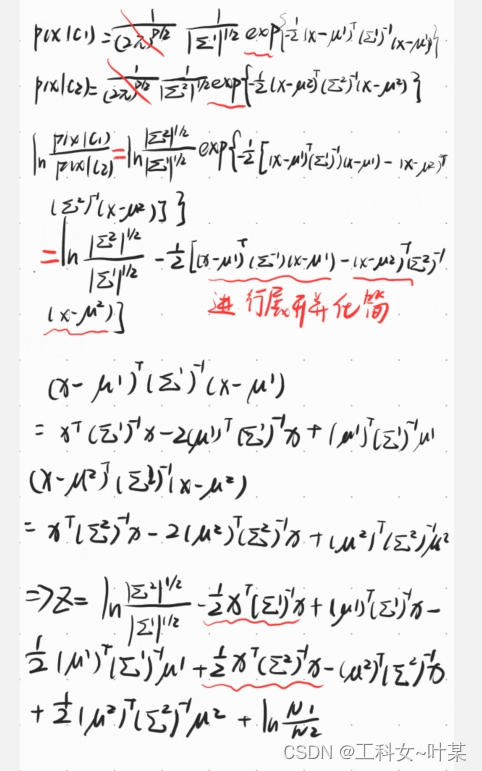 p(x|C1)=1/(2π)^{D/2} 1/|Σ¹|^{1/2} exp{-1/2(x-μ¹)ᵀ(Σ¹)⁻¹(x-μ¹)}
p(x|C2)=1/(2π)^{D/2} 1/|Σ²|^{1/2} exp{-1/2(x-μ²)ᵀ(Σ²)⁻¹(x-μ²)}
ln p(x|C1)/p(x|C2) = ln |Σ²|^{1/2}/|Σ¹|^{1/2} exp{-1/2[(x-μ¹)ᵀ(Σ¹)⁻¹(x-μ¹)-(x-μ²)ᵀ
(Σ²)⁻¹(x-μ²)]}
= ln |Σ²|^{1/2}/|Σ¹|^{1/2} - 1/2[(x-μ¹)ᵀ(Σ¹)⁻¹(x-μ¹)-(x-μ²)ᵀ(Σ²)⁻¹
(x-μ²)]
进行展开并化简
(x-μ¹)ᵀ(Σ¹)⁻¹(x-μ¹)
= xᵀ(Σ¹)⁻¹x-2(μ¹)ᵀ(Σ¹)⁻¹x+(μ¹)ᵀ(Σ¹)⁻¹μ¹
(x-μ²)ᵀ(Σ²)⁻¹(x-μ²)
= xᵀ(Σ²)⁻¹x-2(μ²)ᵀ(Σ²)⁻¹x+(μ²)ᵀ(Σ²)⁻¹μ²
=>Z= ln |Σ²|^{1/2}/|Σ¹|^{1/2} - 1/2xᵀ(Σ¹)⁻¹x+(μ¹)ᵀ(Σ¹)⁻¹x-
1/2(μ¹)ᵀ(Σ¹)⁻¹μ¹+1/2xᵀ(Σ²)⁻¹x-(μ²)ᵀ(Σ²)⁻¹x
+1/2(μ²)ᵀ(Σ²)⁻¹μ²+ln N1/N2
CSDN @工科女~叶某